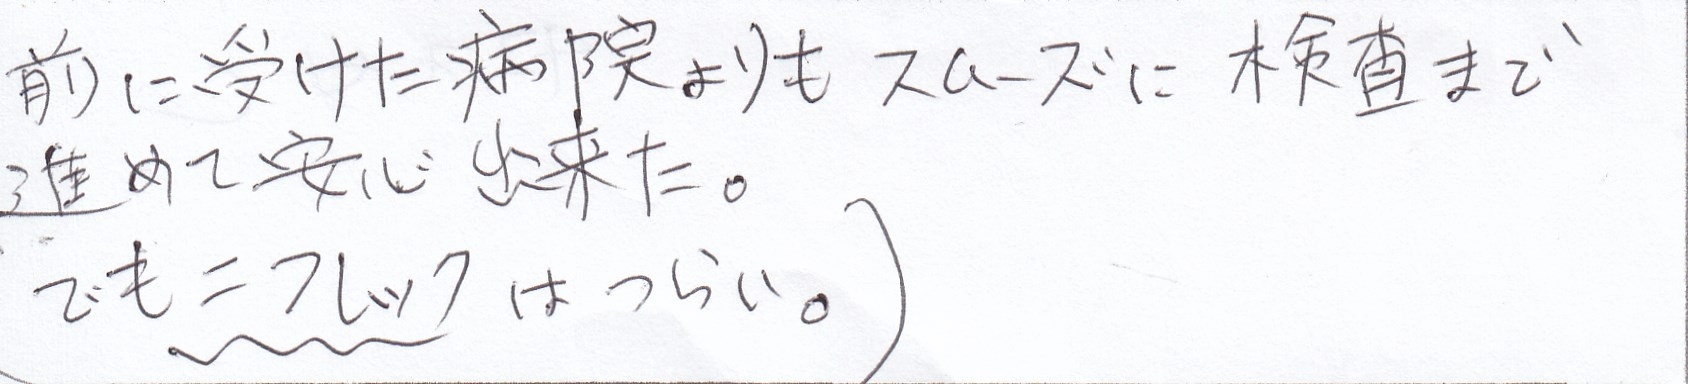 前に受けた病院よりもスムーズに検査まで
進めて安心出来た。
(でもニフレックはつらい。)